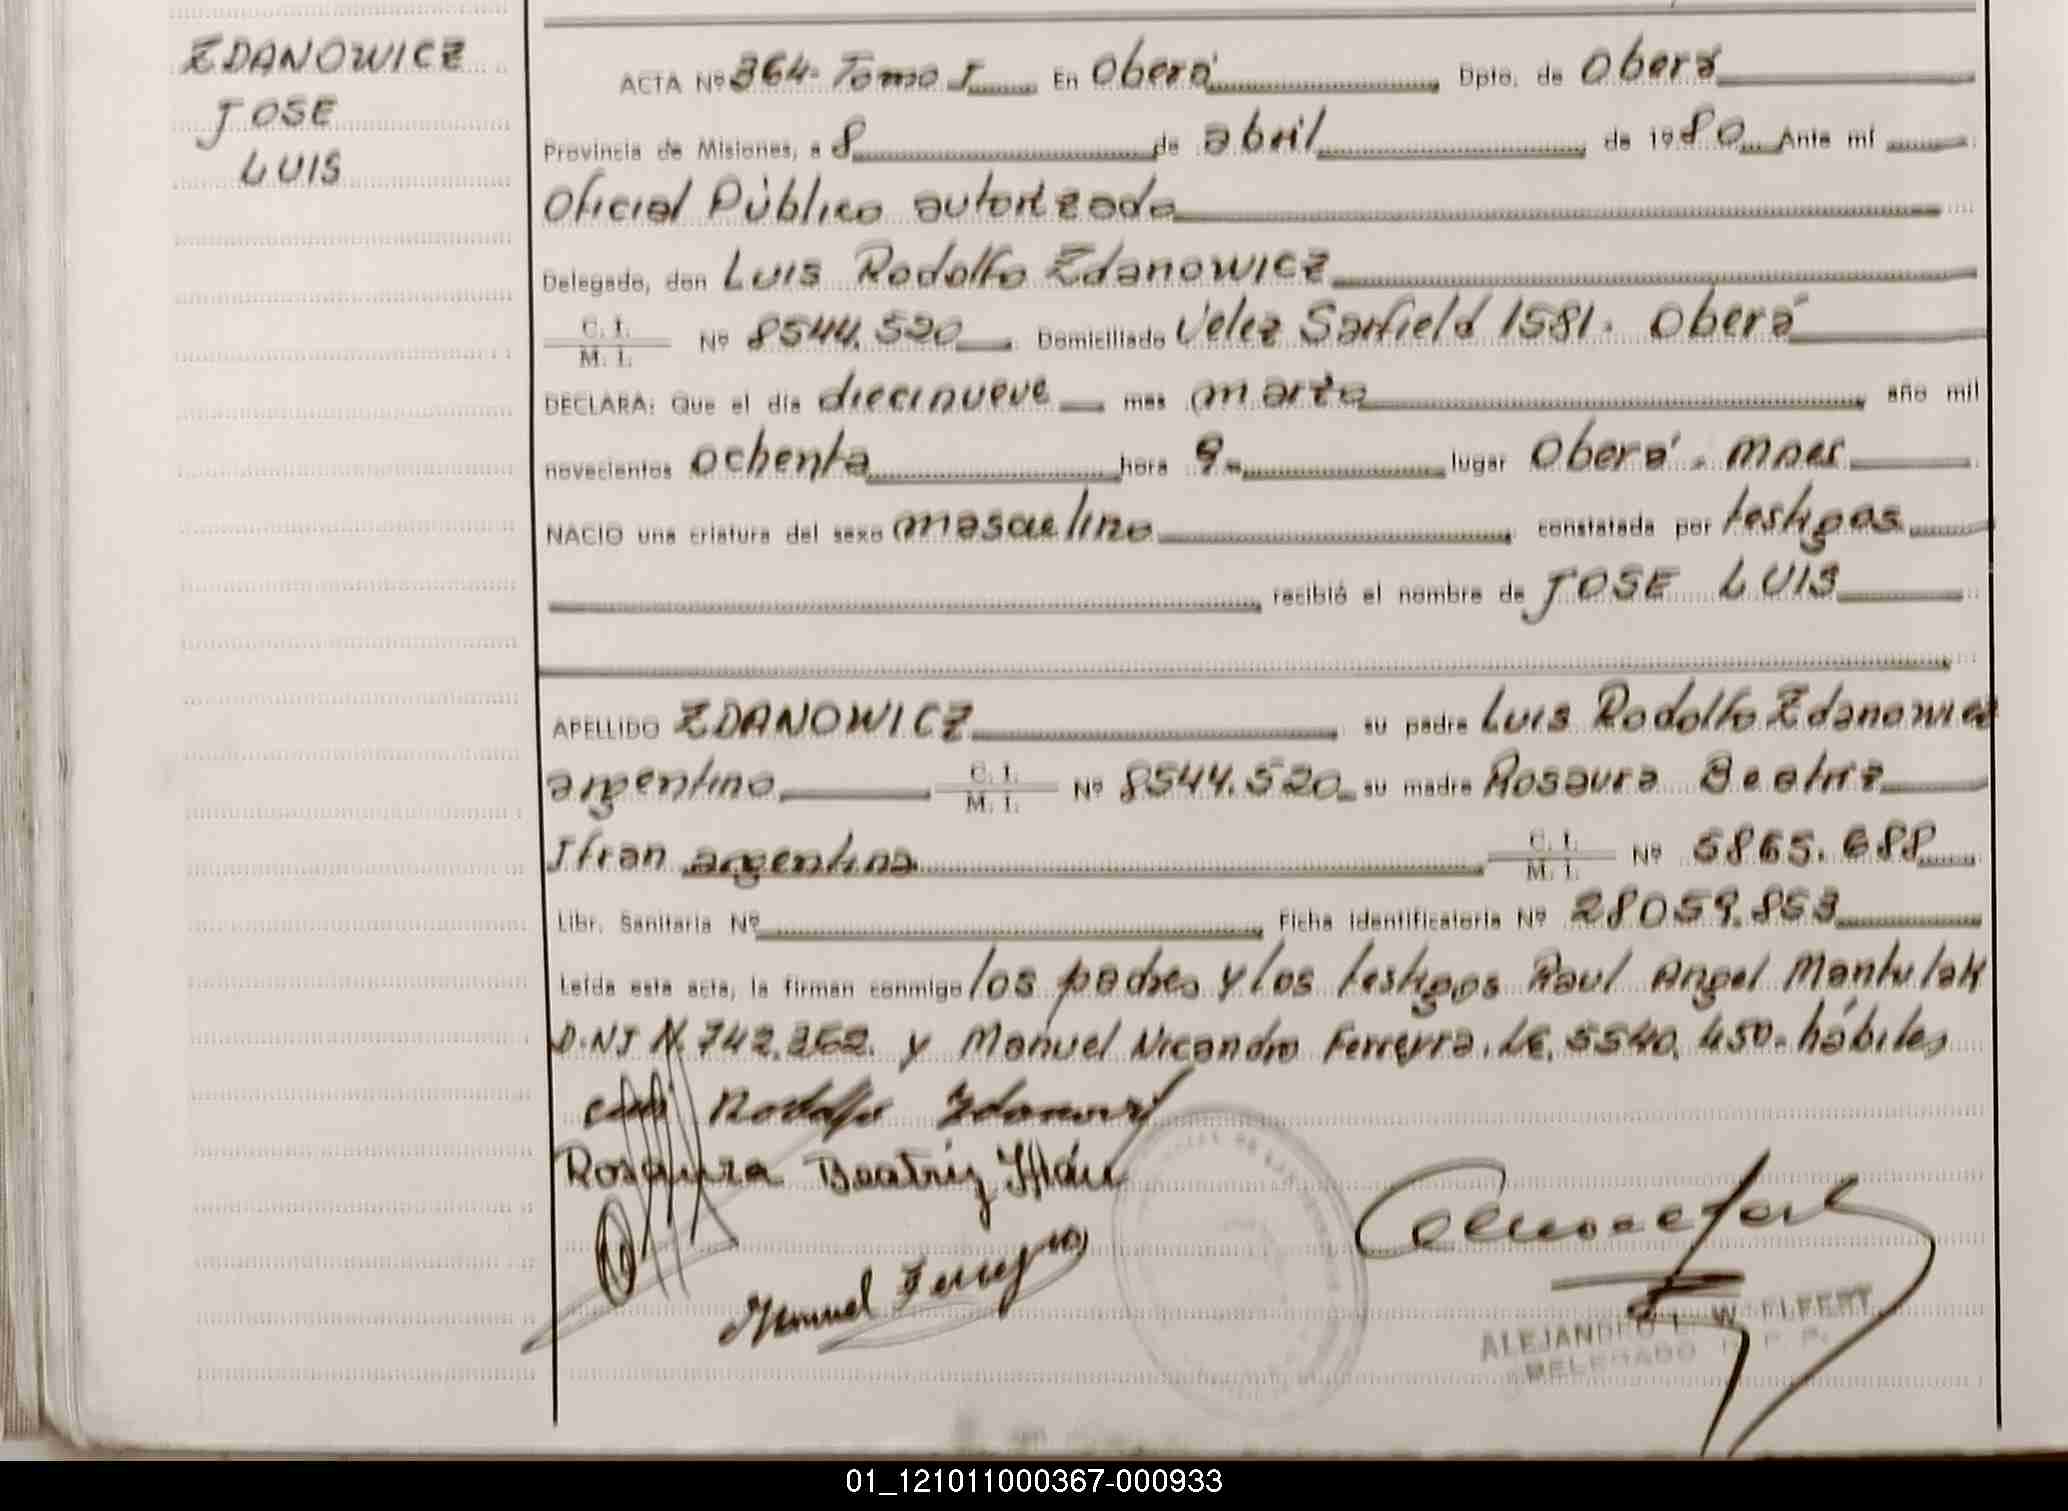 ZDANOWICZ
JOSE
LUIS
ACTA Nº 364- Tomo I En Oberá Dpto. de Oberá
Provincia de Misiones, a 8 de abril de 1980 Ante mí
Oficial Público autorizado
Delegado, don Luis Rodolfo Zdanowicz
C. I.
M. I. Nº 8544.520 Domiciliado Velez Sarfield 1581. Oberá
DECLARA: Que el día diecinueve mes marzo año mil
novecientos ochenta hora 9- lugar Oberá - Mnes
NACIO una criatura del sexo masculino constatada por testigos
recibió el nombre de JOSE LUIS
APELLIDO ZDANOWICZ su padre Luis Rodolfo Zdanowicz
argentino C. I.
M. I. Nº 8544.520 su madre Rosaura Beatriz
Ifran argentina C. I.
M. I. Nº 5865.688
Libr. Sanitaria Nº Ficha identificatoria Nº 28059.853
Leída esta acta, la firman conmigo los padres y los testigos Raul Angel Mantulak
D.N.I 742.362. y Manuel Nicandro Ferreyra. LE. 5540. 450- hábiles
Luis Rodolfo Zdanowicz
Rosaura Beatriz Ifrán
Manuel Ferreyra
ALEJANDRO W. ELFERT
DELEGADO
01_121011000367-000933